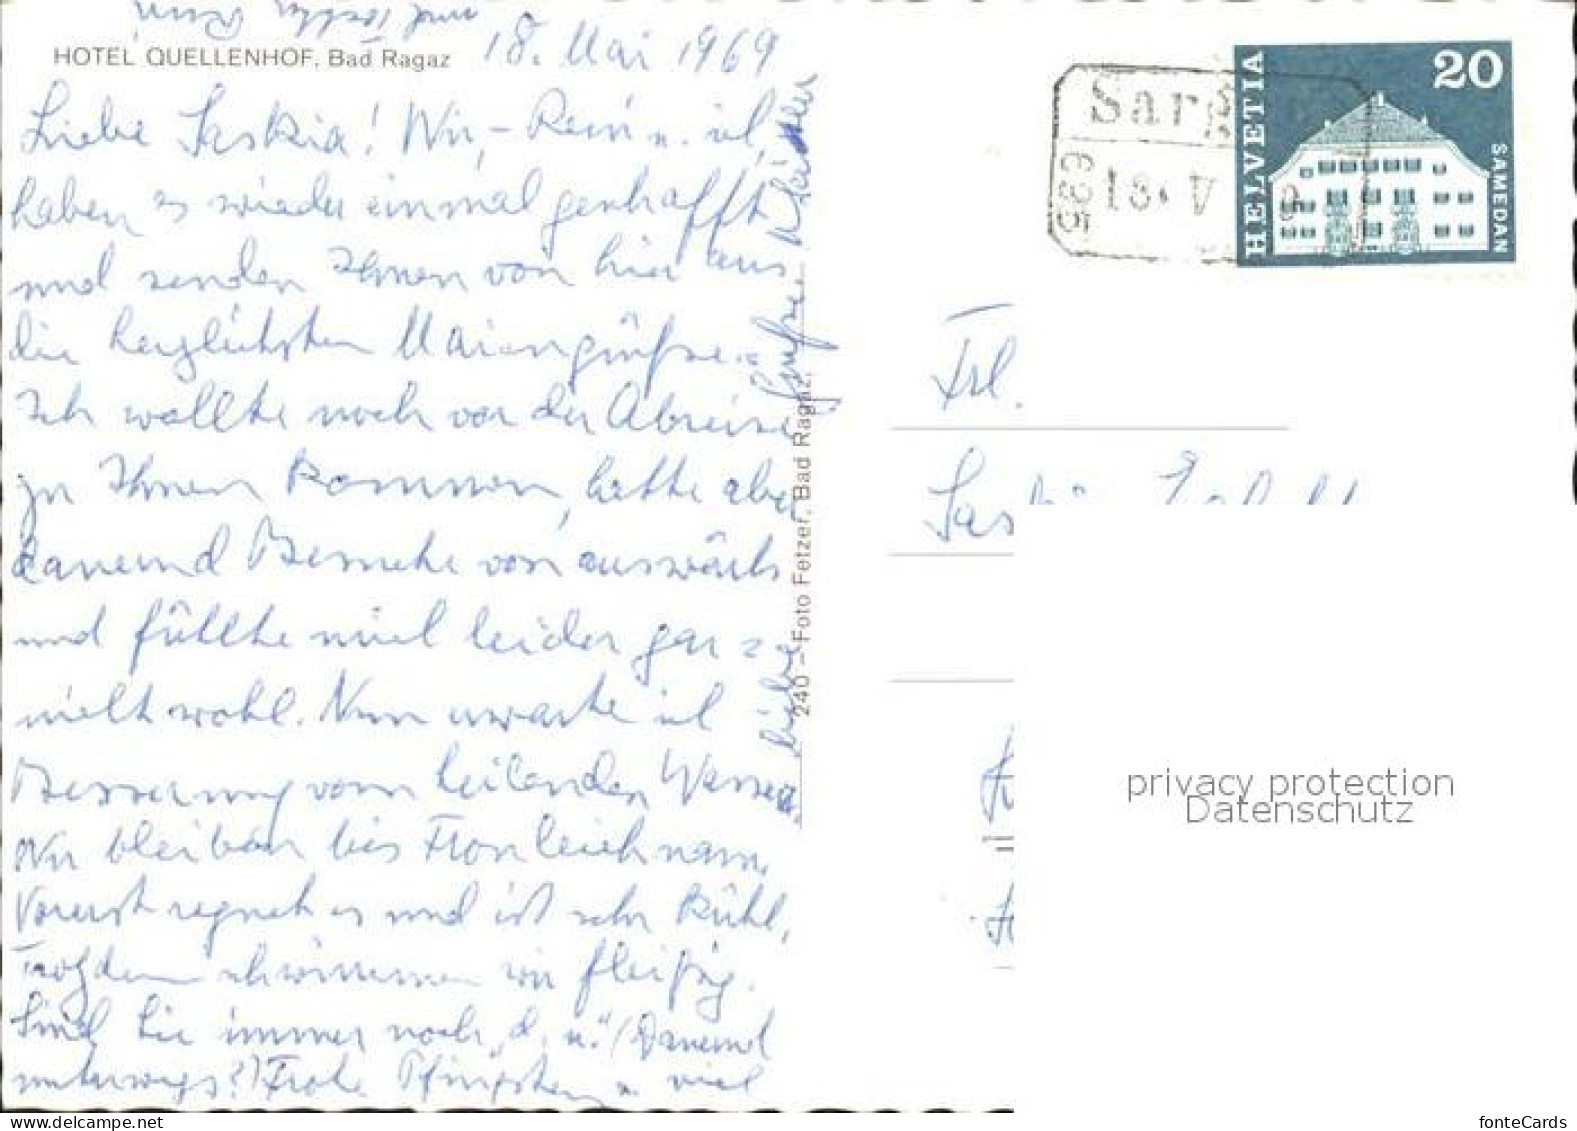 HOTEL QUELLENHOF, Bad Ragaz
18. Mai 1969
Liebe Saskia! Wir, – Rein u. ich,
haben es wieder einmal geschafft
und senden Ihnen von hier aus
die herzlichsten Maiengrüße.
Ich wollte noch vor der Abreise
zu Ihnen kommen, hatte aber
dauernd Besuche von auswärts
und fühlte mich leider gar
nicht wohl. Nun erwarte ich
Besserung vom heilenden Wasser.
Wir bleiben bis Fronleichnam.
Vorerst regnet es und ist sehr kühl,
Trotzdem schwimmen wir fleißig.
Sind Sie immer noch „d. u." (Dauernd
unterwegs?) Frohe Pfingsten u. viel
liebe Grüße
und
240 – Foto Fetzer, Bad Ragaz
Sarg
18. V
HELVETIA
20
SAMEDAN
Frl.
privacy protection
Datenschutz
fonteCards